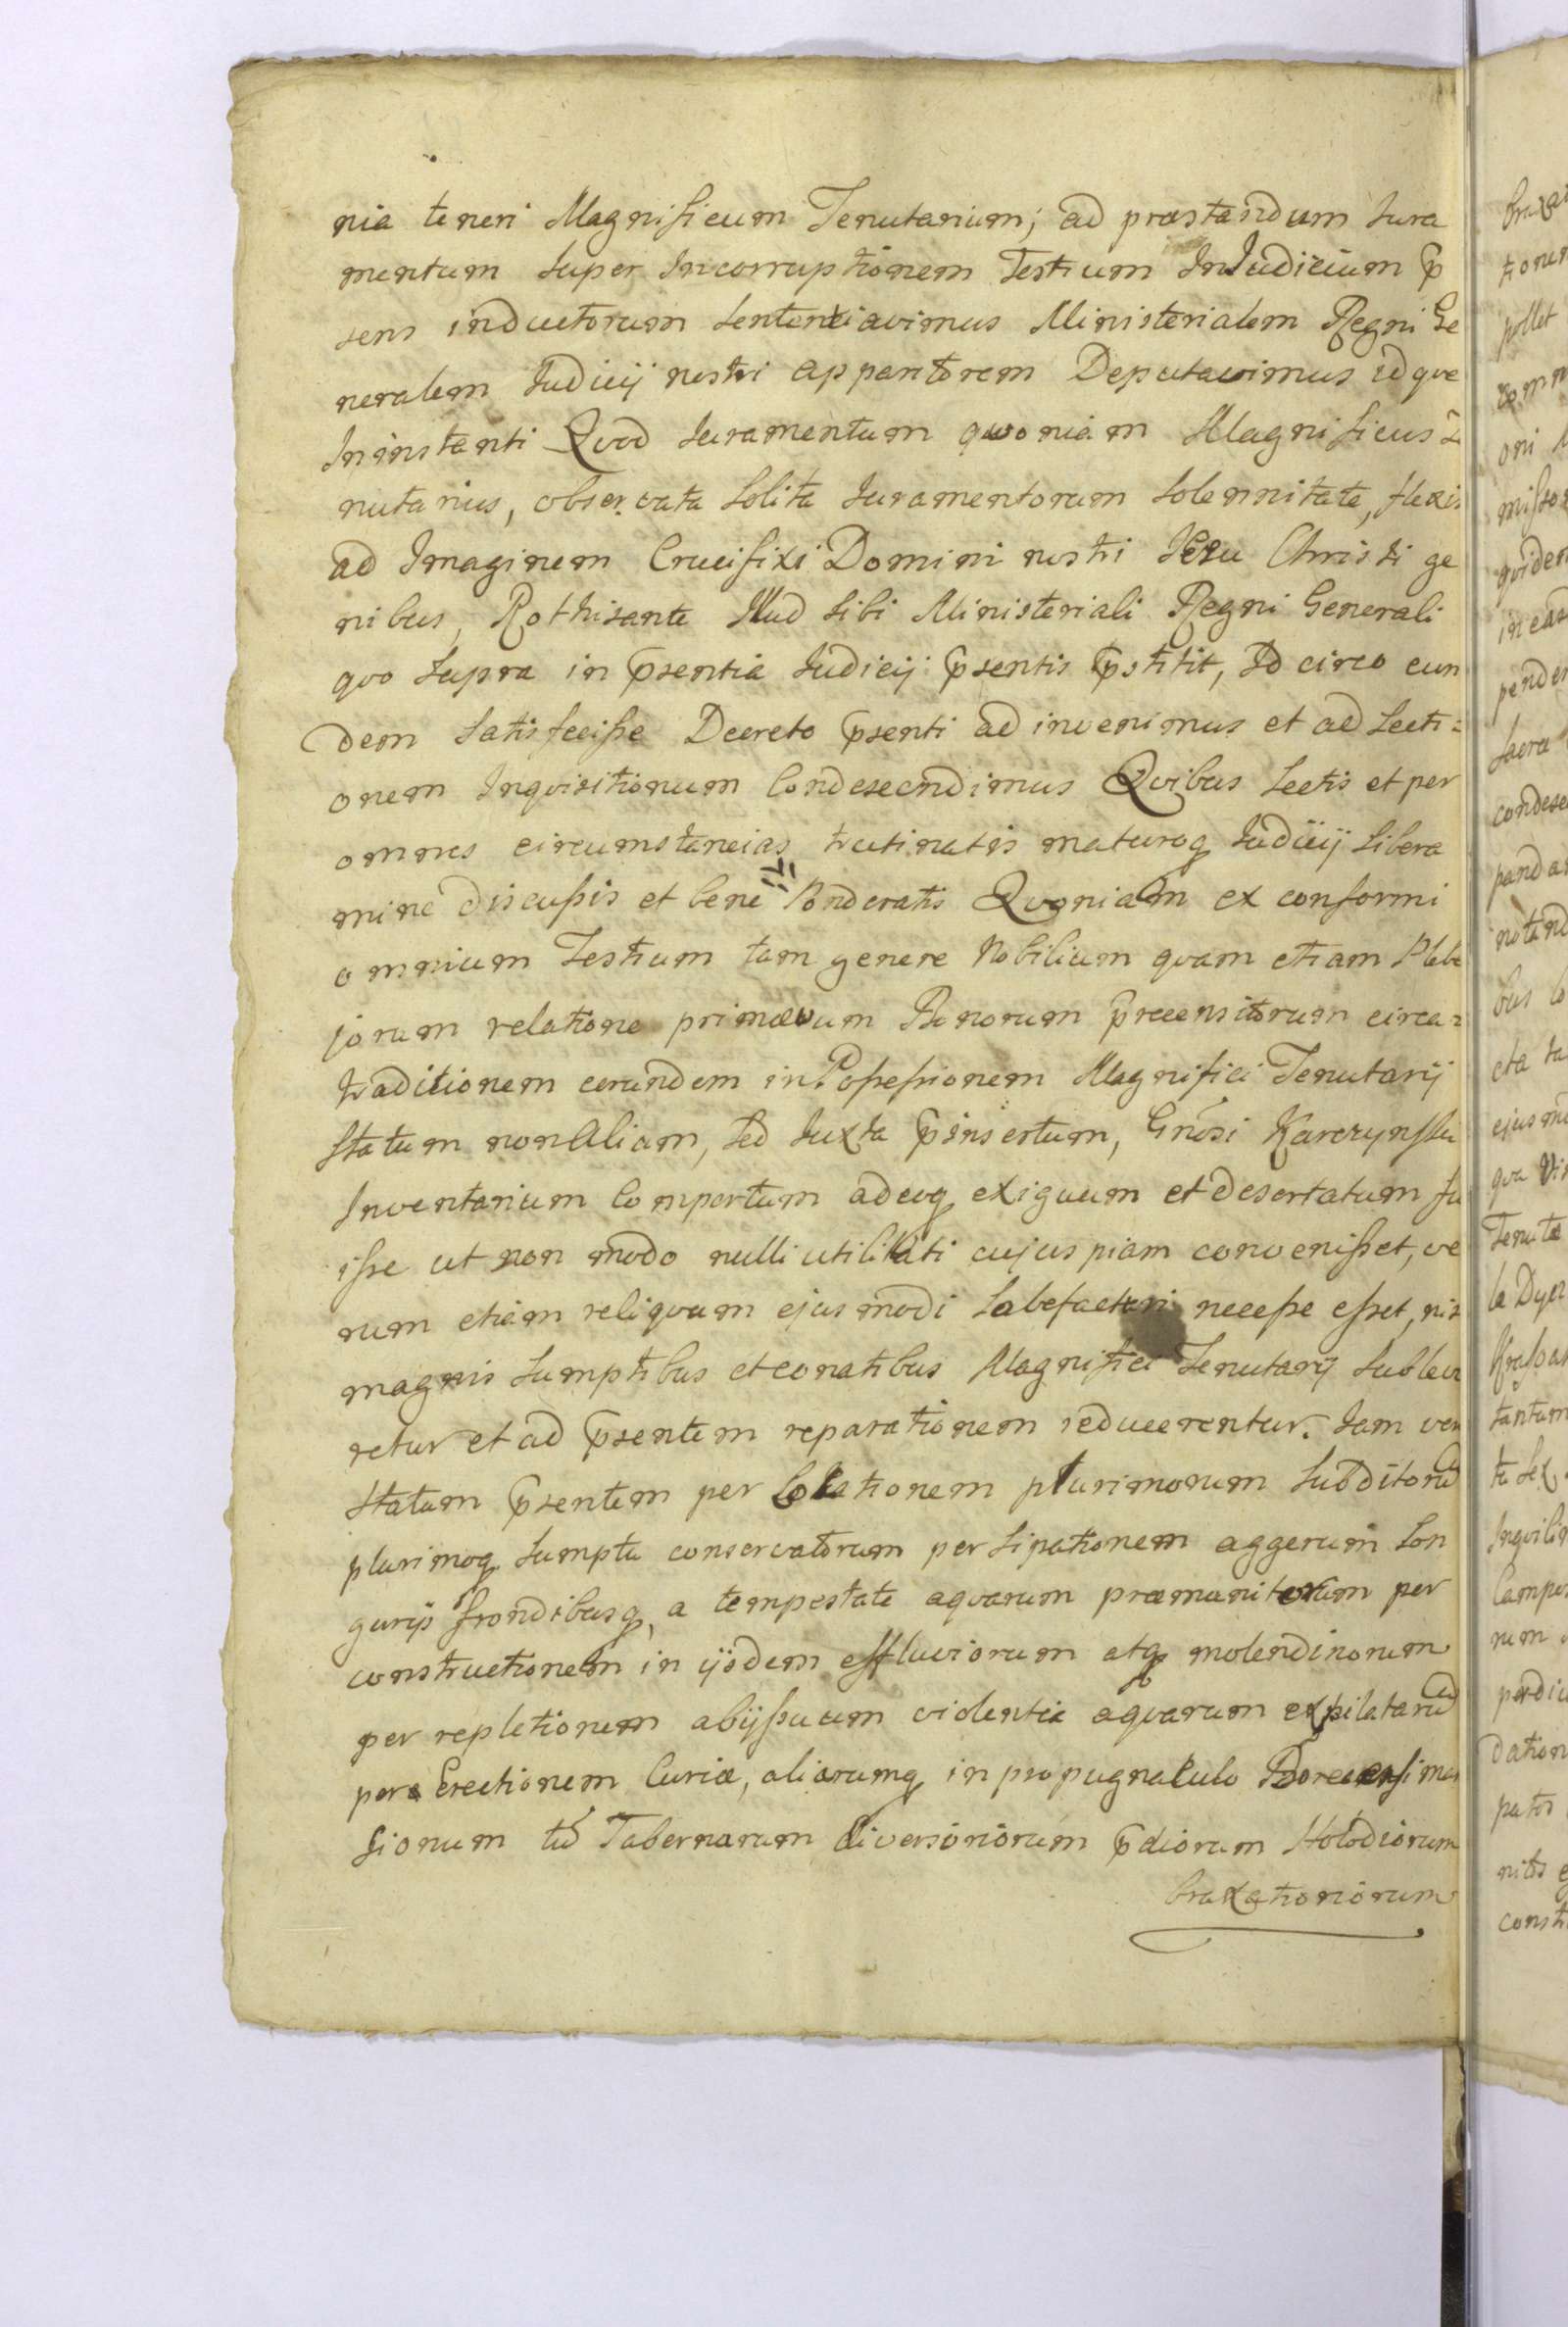 nia teneri Magnificum Tenutarium; ad præstandum Jura
mentum super Incorruptionem Testium In Judicium p̄
sens inductorum sententiavimus Ministerialem Regni Ge
neralem Judicij nostri apparitorem Deputavimus idque
In instanti Quod Juramentum quoniam Magnificus
nutarius, observata solita Juramentorum solennitate, flexis
ad Imaginem Crucifixi Domini nostri Jesu Christi ge
nibus, Rothisante Illud sibi Ministeriali Regni Generali
quo supra in p̄sentia Judicij p̄sentis p̄stitit, Id circo eun
dem satisfecisse Decreto p̄senti ad invenimus et ad Lecti=
onem Inquisitionum Condescendimus Quibus Lectis et per
omnes circumstancias trutinatis maturoq Judicij Libera
mine discussis et bene Ponderatis Quoniam ex conformi
omnium Testium tam genere Nobilium quam etiam Plebe
jorum relatione primævum Bonorum p̄recensitorum circa=
traditionem eorundem in Possessionem Magnifici Tenutarij
statum non Aliam, sed Juxta p̄insertum, Gn̄osi
Inventarium Compertum adeoq exiguum et desertatum fu
isse ut non modo nulli utilitati cujuspiam convenisset, ve
rum etiam reliquum ejusmodi Labefactari necesse esset, nis
magnis sumptibus et conatibus Magnifici Tenutarij subleva
retur et ad p̄sentem reparationem reducerentur. Jam ver
statum p̄sentem per Locationem plurimorum subditorū
plurimoq sumptu conservatorum per sipationem aggerum Lon
gurijs frondibusq, a tempestate aquarum præmunitorum per
constructionem in ijsdem effluviorum atq molendinorum
per repletionem abijssuum violentia aquarum expilatarū
per Erectionem Curiæ, aliarumq in propugnaculo man
sionum tū Tabernarum diversoriorum p̄diorum Holodiorum
braxatoriorum